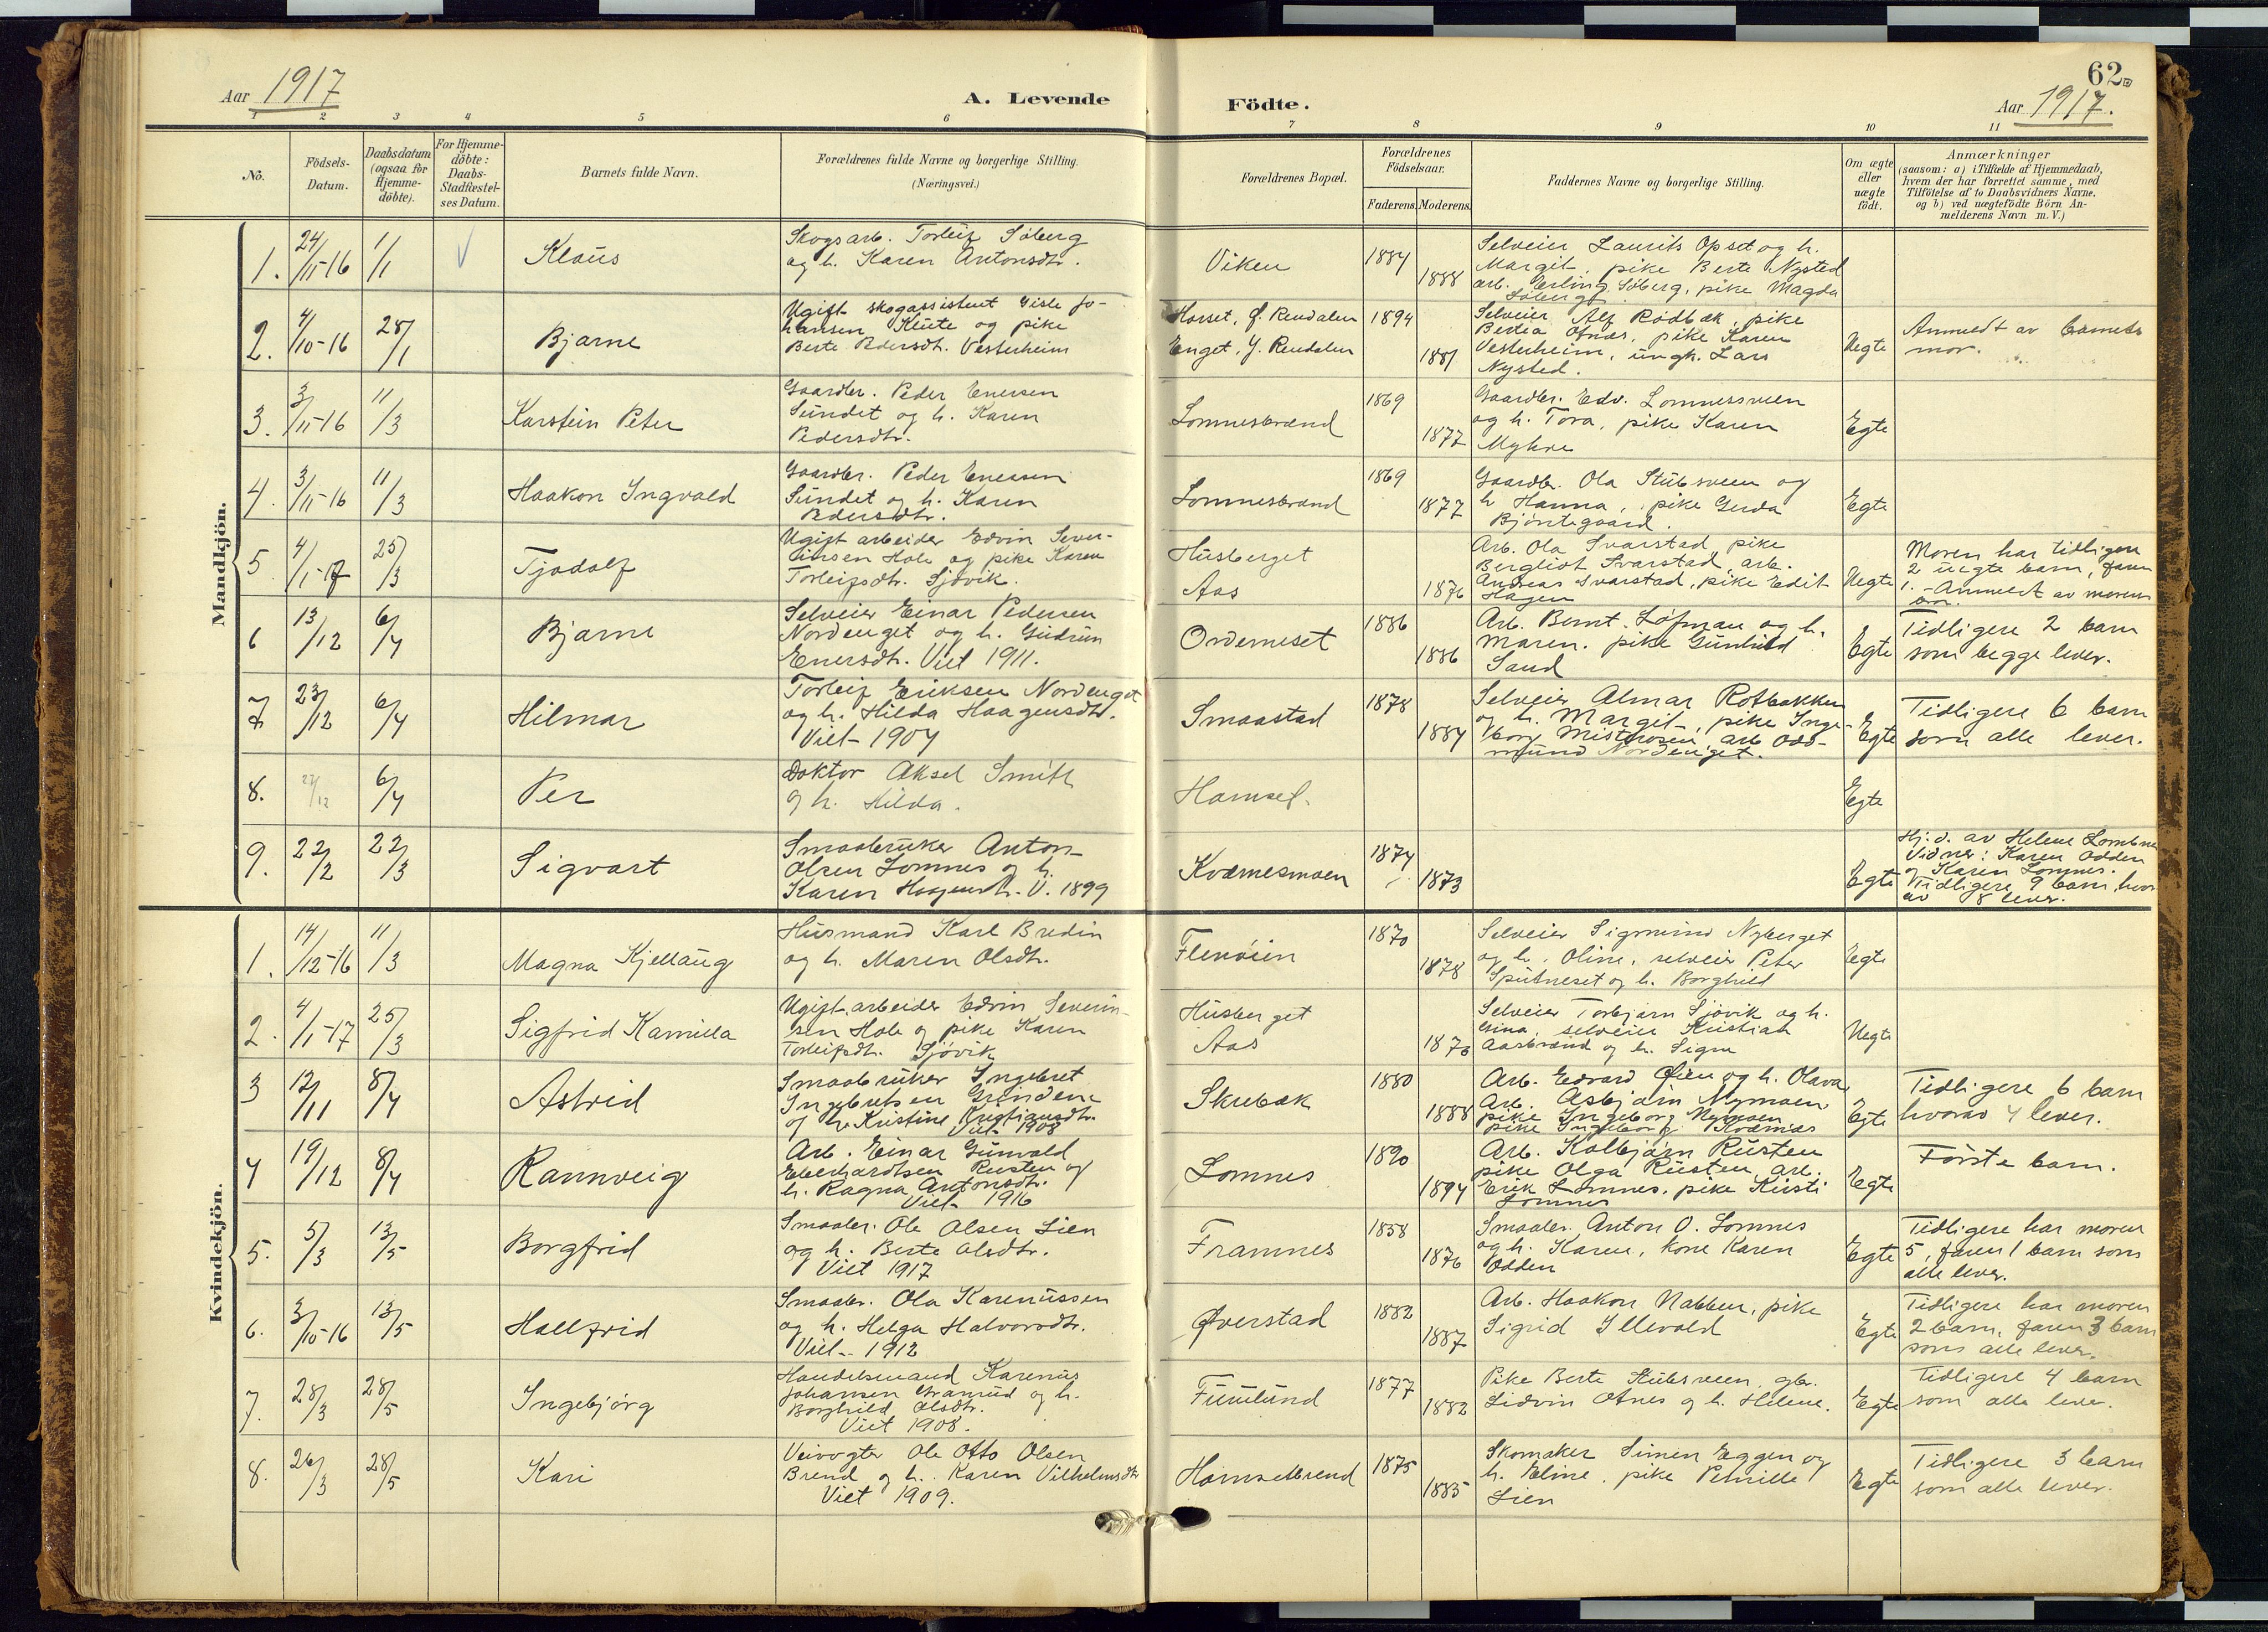 Aar 1917
A. Levende
Födte.
62.
Aar 1917.
1 2 3 4 5 6 7 8 9 10 11
No.
Födsels-
Datum.
Daabsdatum
(ogsaa for
Hjemme-
döbte).
For Hjemme-
döbte:
Daabs-
Stadfæstel-
ses Datum.
Barnets fulde Navn.
Forældrenes fulde Navne og borgerlige Stilling.
(Næringsvei.)
Forældrenes Bopæl.
Forældrenes
Födselsaar.
Faderens. Moderens.
Faddernes Navne og borgerlige Stilling.
Om ægte
eller
uægte
födt.
Anmærkninger
(saasom: a) i Tilfælde af Hjemmedaab,
hvem der har forrettet samme, med
Tilföielse af to Daabsvidners Navne,
og b) ved uægtefödte Börn An-
melderens Navn m. V.)
Mandkjön.
1. 24/11-16 1/1 Klaus
Skogsarb. Torleif Søberg
og h. Karen Antonsdtr.
Viken
1884
1888
Selveier Laurits Opset og h.
Margit, pike Berte Nysted
arb. Erling Søberg, pike Magda
Søberg
2. 4/10-16 28/1 Bjarne
Ugift skogassistent Gisle Jo-
hansen Kleite og pike
Berte Pedersdt. Vesterheim
Horset, Ø. Rendalen
Enget, Y. Rendalen
1894
1881
Selveier Alf Rødbæk, pike
Bertea Otnes, pike Karen
Vesterheim, ungk. Lars
Nysted.
Uegte
Anmeldt av barnets
mor.
3. 3/11-16 11/3 Karstein Peter
Gaardbr. Peder Enersen
Sundet og h. Karen
Pedersdtr.
Lomnesbrænd
1869
1877
Gaardbr. Edv. Lomnessveen
og h. Tora, pike Karen
Myhre
Egte
4. 3/11-16 11/3 Haakon Ingvald
Gaardbr. Peder Enersen
Sundet og h. Karen
Pedersdtr.
Lomnesbrænd
1869
1877
Gaardbr. Ola Stubsveen og
h. Hanna, pike Gerda
Bjøntegaard.
Egte
5 4/1-17 25/3 Tjodolf
Ugift arbeider Edvin Sever-
insen Hole og pike Karen
Torleifsdtr. Sjøvik.
Husberget
Aas
1876
Arb. Ola Svarstad, pike
Bergliot Svarstad, arb.
Andreas Svarstad, pike Edit
Hagen
Uegte
Moren har tidligere
2 uegte barn, faren
1. - Anmeldt av morens
bror.
6 13/12 6/4 Bjarne
Selveier Einar Pedersen
Nordenget og h. Gudrun
Enersdtr. Viet 1911.
Ordemeset
1886
1886
Arb. Bernt Løfman og h.
Maren. pike Gunhild
Sand
Egte
Tidligere 2 barn
som begge lever.
7 23/12 6/4 Hilmar
Torleif Eriksen Nordenget
og h. Hilda Haagensdtr.
Viet 1904
Smaastad
1878
1884
Selveier Almar Rotbakken
og h. Margit, pike Inge-
borg Misterosen, arb. Odd-
mund Nordenget.
Egte
Tidligere 6 barn
som alle lever.
8. 27/12 6/4 Per
Doktor Aksel Smith
og h. Hilda.
Harnset.
Egte
9. 22/2 22/3 Sigvart
Smaabruker Anton
Olsen Lomnes og h.
Karen Haagensdtr. V. 1899
Kværnesmoen
1874
1873
Egte
Hj.d. av Helene Lombnæs
Vidner: Karen Odden
og Karen Lomnes.
Tidligere 9 barn hvor
av 8 lever.
Kvindekjön.
1. 14/12-16 11/3 Magna Kjellaug
Husmand Karl Bredin
og h. Maren Olsdtr.
Flenøien
1870
1878
Selveier Sigmund Nyberget
og h. Oline, selveier Peter
Sputneset og h. Borghild
Egte
2. 4/1-17 25/3 Sigfrid Kamilla
Ugift arbeider Edvin Severin-
sen Hole og pike Karen
Torleifsdtr. Sjøvik
Husberget
Aas
1876
Selveier Torbjørn Sjøvik og h.
Gina, selveier Kristian
Aasbrænd og h. Signe
Uegte
3 12/11 8/4 Astrid
Smaabruker Ingebret
Ingebretsen Grinden
og h. Kristine Kristiansdtr.
Viet 1908
Skubæk
1880
1888
Arb. Edvard Øien og h. Olava,
Arb. Asbjørn Nymoen
pike Ingeborg Nymoen
pike Ingeborg Kværnæs
Egte
Tidligere 6 barn
hvorav 4 lever.
4 19/12 8/4 Rannveig
Arb. Einar Gunvald
Eberhardtsen Rusten og
h. Ragna Antonsdtr.
Viet 1916
Lomnes
1890
1894
Arb. Kolbjørn Rusten
pike Olga Rusten, arb.
Erik Lomnes, pike Kirsti
Lomnes
Egte
Første barn.
5. 5/3 13/5 Borgfrid
Smaabr. Ole Olsen Lien
og h. Berte Olsdtr.
Viet 1917
Framnes
1858
1876
Smaabr. Anton O. Lomnes
og h. Karen, kone Karen
Odden
Egte
Tidligere har moren
5, faren 1 barn som
alle lever.
6. 3/10-16 13/5 Hallfrid
Smaabr. Ola Karenussen
og h. Helga Halvorsdtr.
Viet 1912
Øverstad
1882
1887
Arb. Haakon Nabben, pike
Sigrid Illevold
Egte
Tidligere har moren
2 barn, faren 3 barn
som alle lever.
7. 28/3 28/5 Ingebjørg
Handelsmand Karenus
Johansen Granrud og h.
Borghild Olsdtr.
Viet 1908.
Furulund
1877
1882
Pike Berte Stubsveen, gbr.
Lidvin Otnes og h. Helene.
Egte
Tidligere 4 barn
som alle lever.
8. 26/3 28/5 Kari
Veivogter Ole Otto Olsen
Brend og h. Karen Vilhelmsdtr
Viet 1909.
Harnsetbrend
1875
1885
Skomaker Simen Eggen og
h. Eline, pike Pernille
Lien
Egte
Tidligere 3 barn
som alle lever.